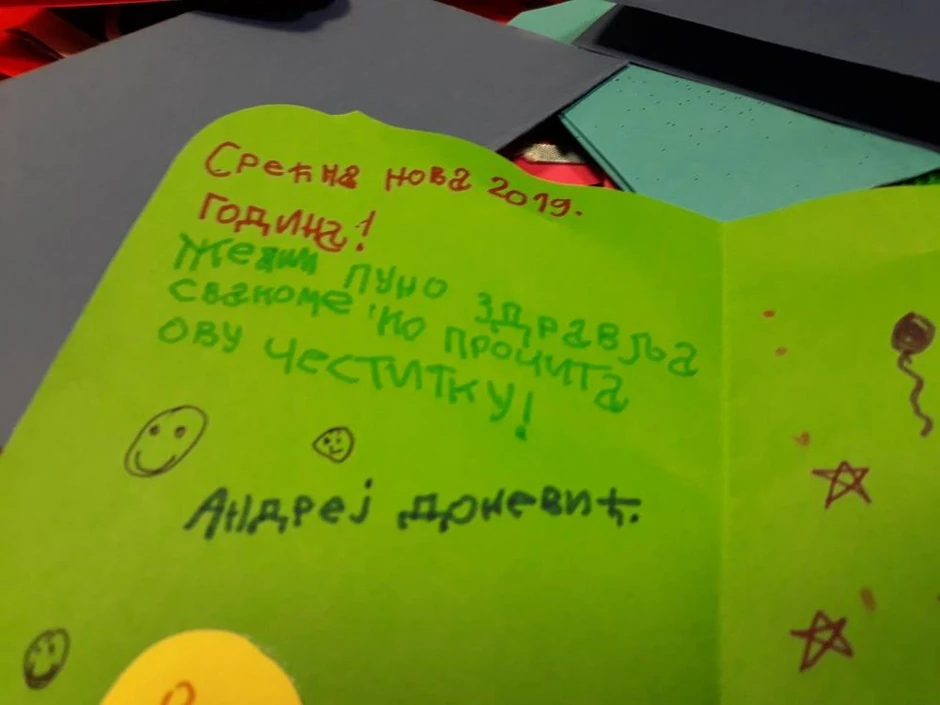 Срећна нова 2019.
година!
Желим пуно здравља
свакоме 'ко прочита
ову честитку!
Андреј